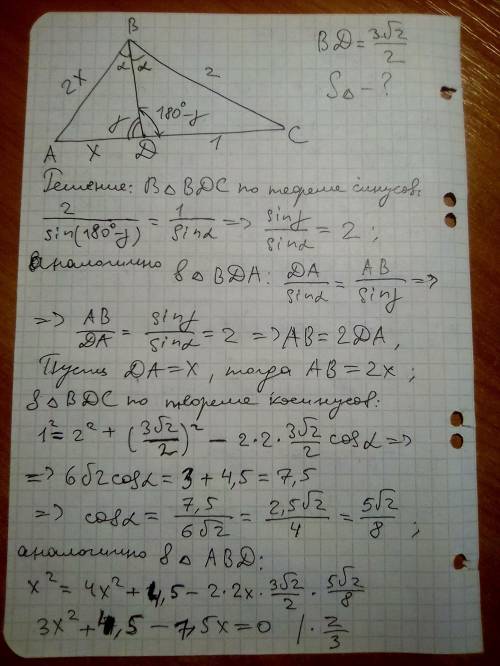 B
BD = 3√2/2
α α
2x
2
S△ - ?
γ
180°-γ
A
x
D
1
C
Решение: В △ BDC по теореме синусов:
2/sin(180°-γ) = 1/sinα => sinγ/sinα = 2 ;
аналогично в △ BDA: DA/sinα = AB/sinγ =>
=> AB/DA = sinγ/sinα = 2 => AB = 2DA ,
Пусть DA = x , тогда AB = 2x ;
в △ BDC по теореме косинусов:
1² = 2² + (3√2/2)² - 2·2·3√2/2 cosα =>
=> 6√2 cosα = 3 + 4,5 = 7,5
=> cosα = 7,5/6√2 = 2,5√2/4 = 5√2/8 ;
аналогично в △ ABD:
x² = 4x² + 4,5 - 2·2x·3√2/2 · 5√2/8
3x² + 4,5 - 7,5x = 0 /· 2/3